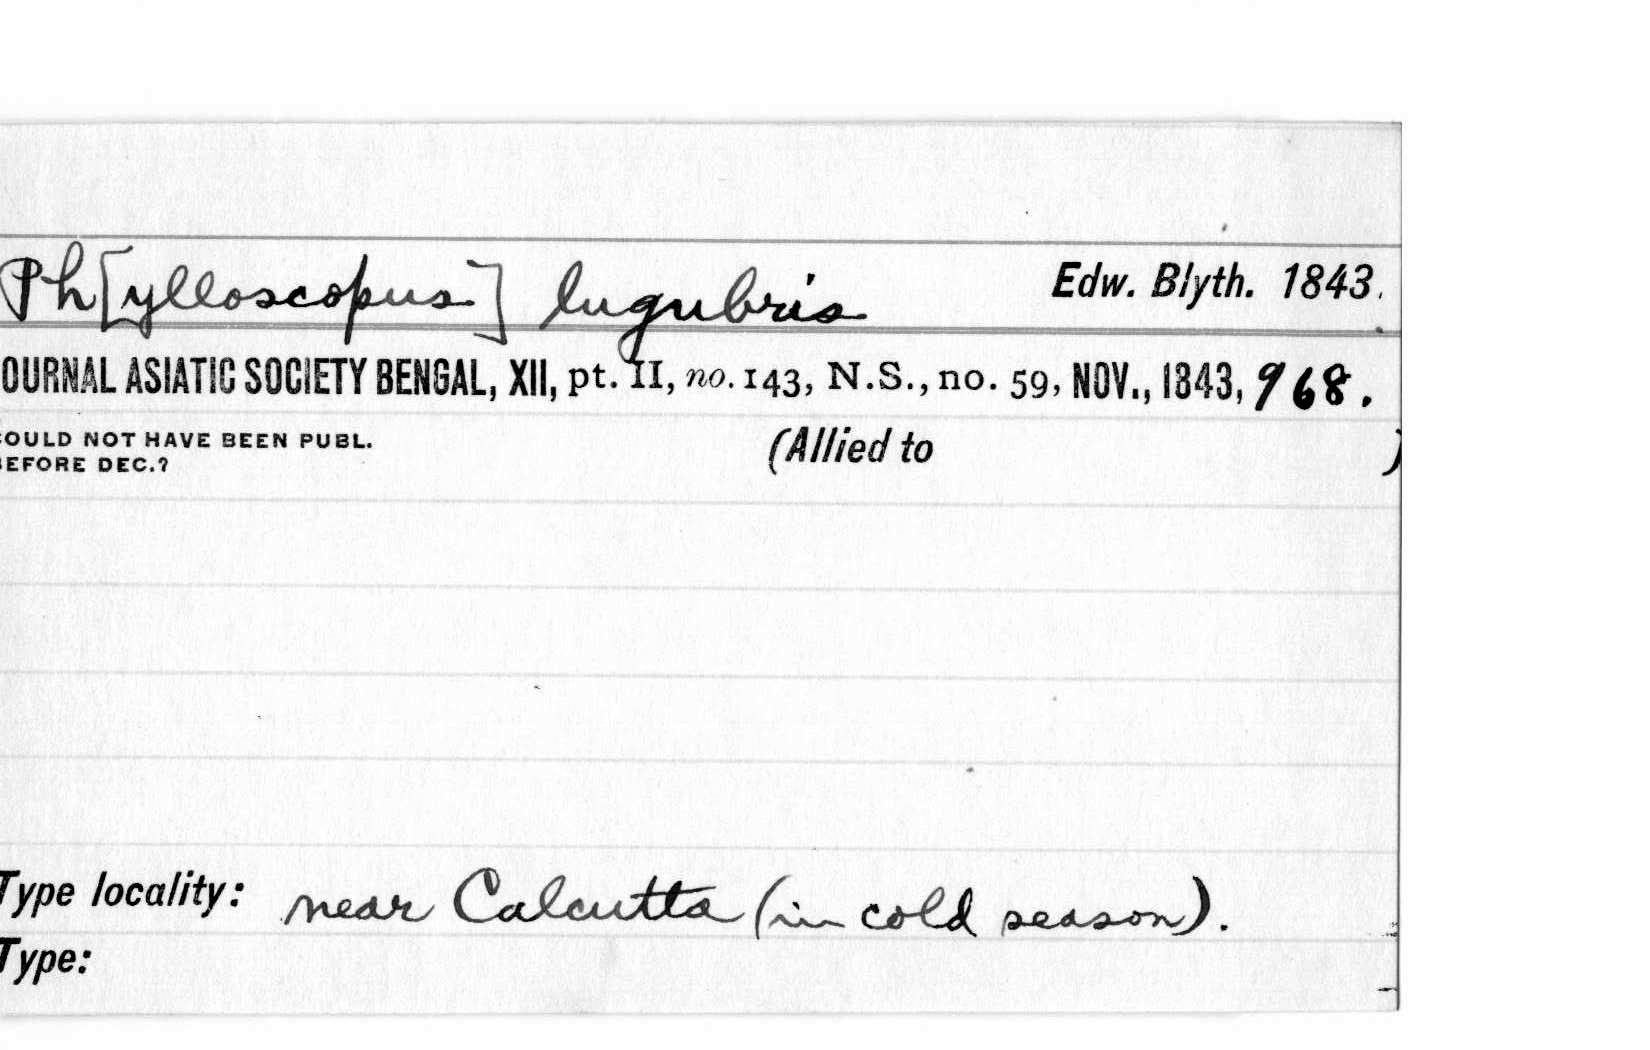 Ph[ylloscopus] lugubris Edw. Blyth. 1843.
OURNAL ASIATIC SOCIETY BENGAL, XII, pt. II, no. 143, N.S., no. 59, NOV., 1843, 968.
COULD NOT HAVE BEEN PUBL. (Allied to )
BEFORE DEC.?
Type locality: near Calcutta (in cold season).
Type: